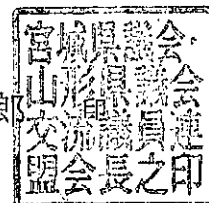 郎 印
宮城県議会
山形県議会
交流議員連
盟会長之印